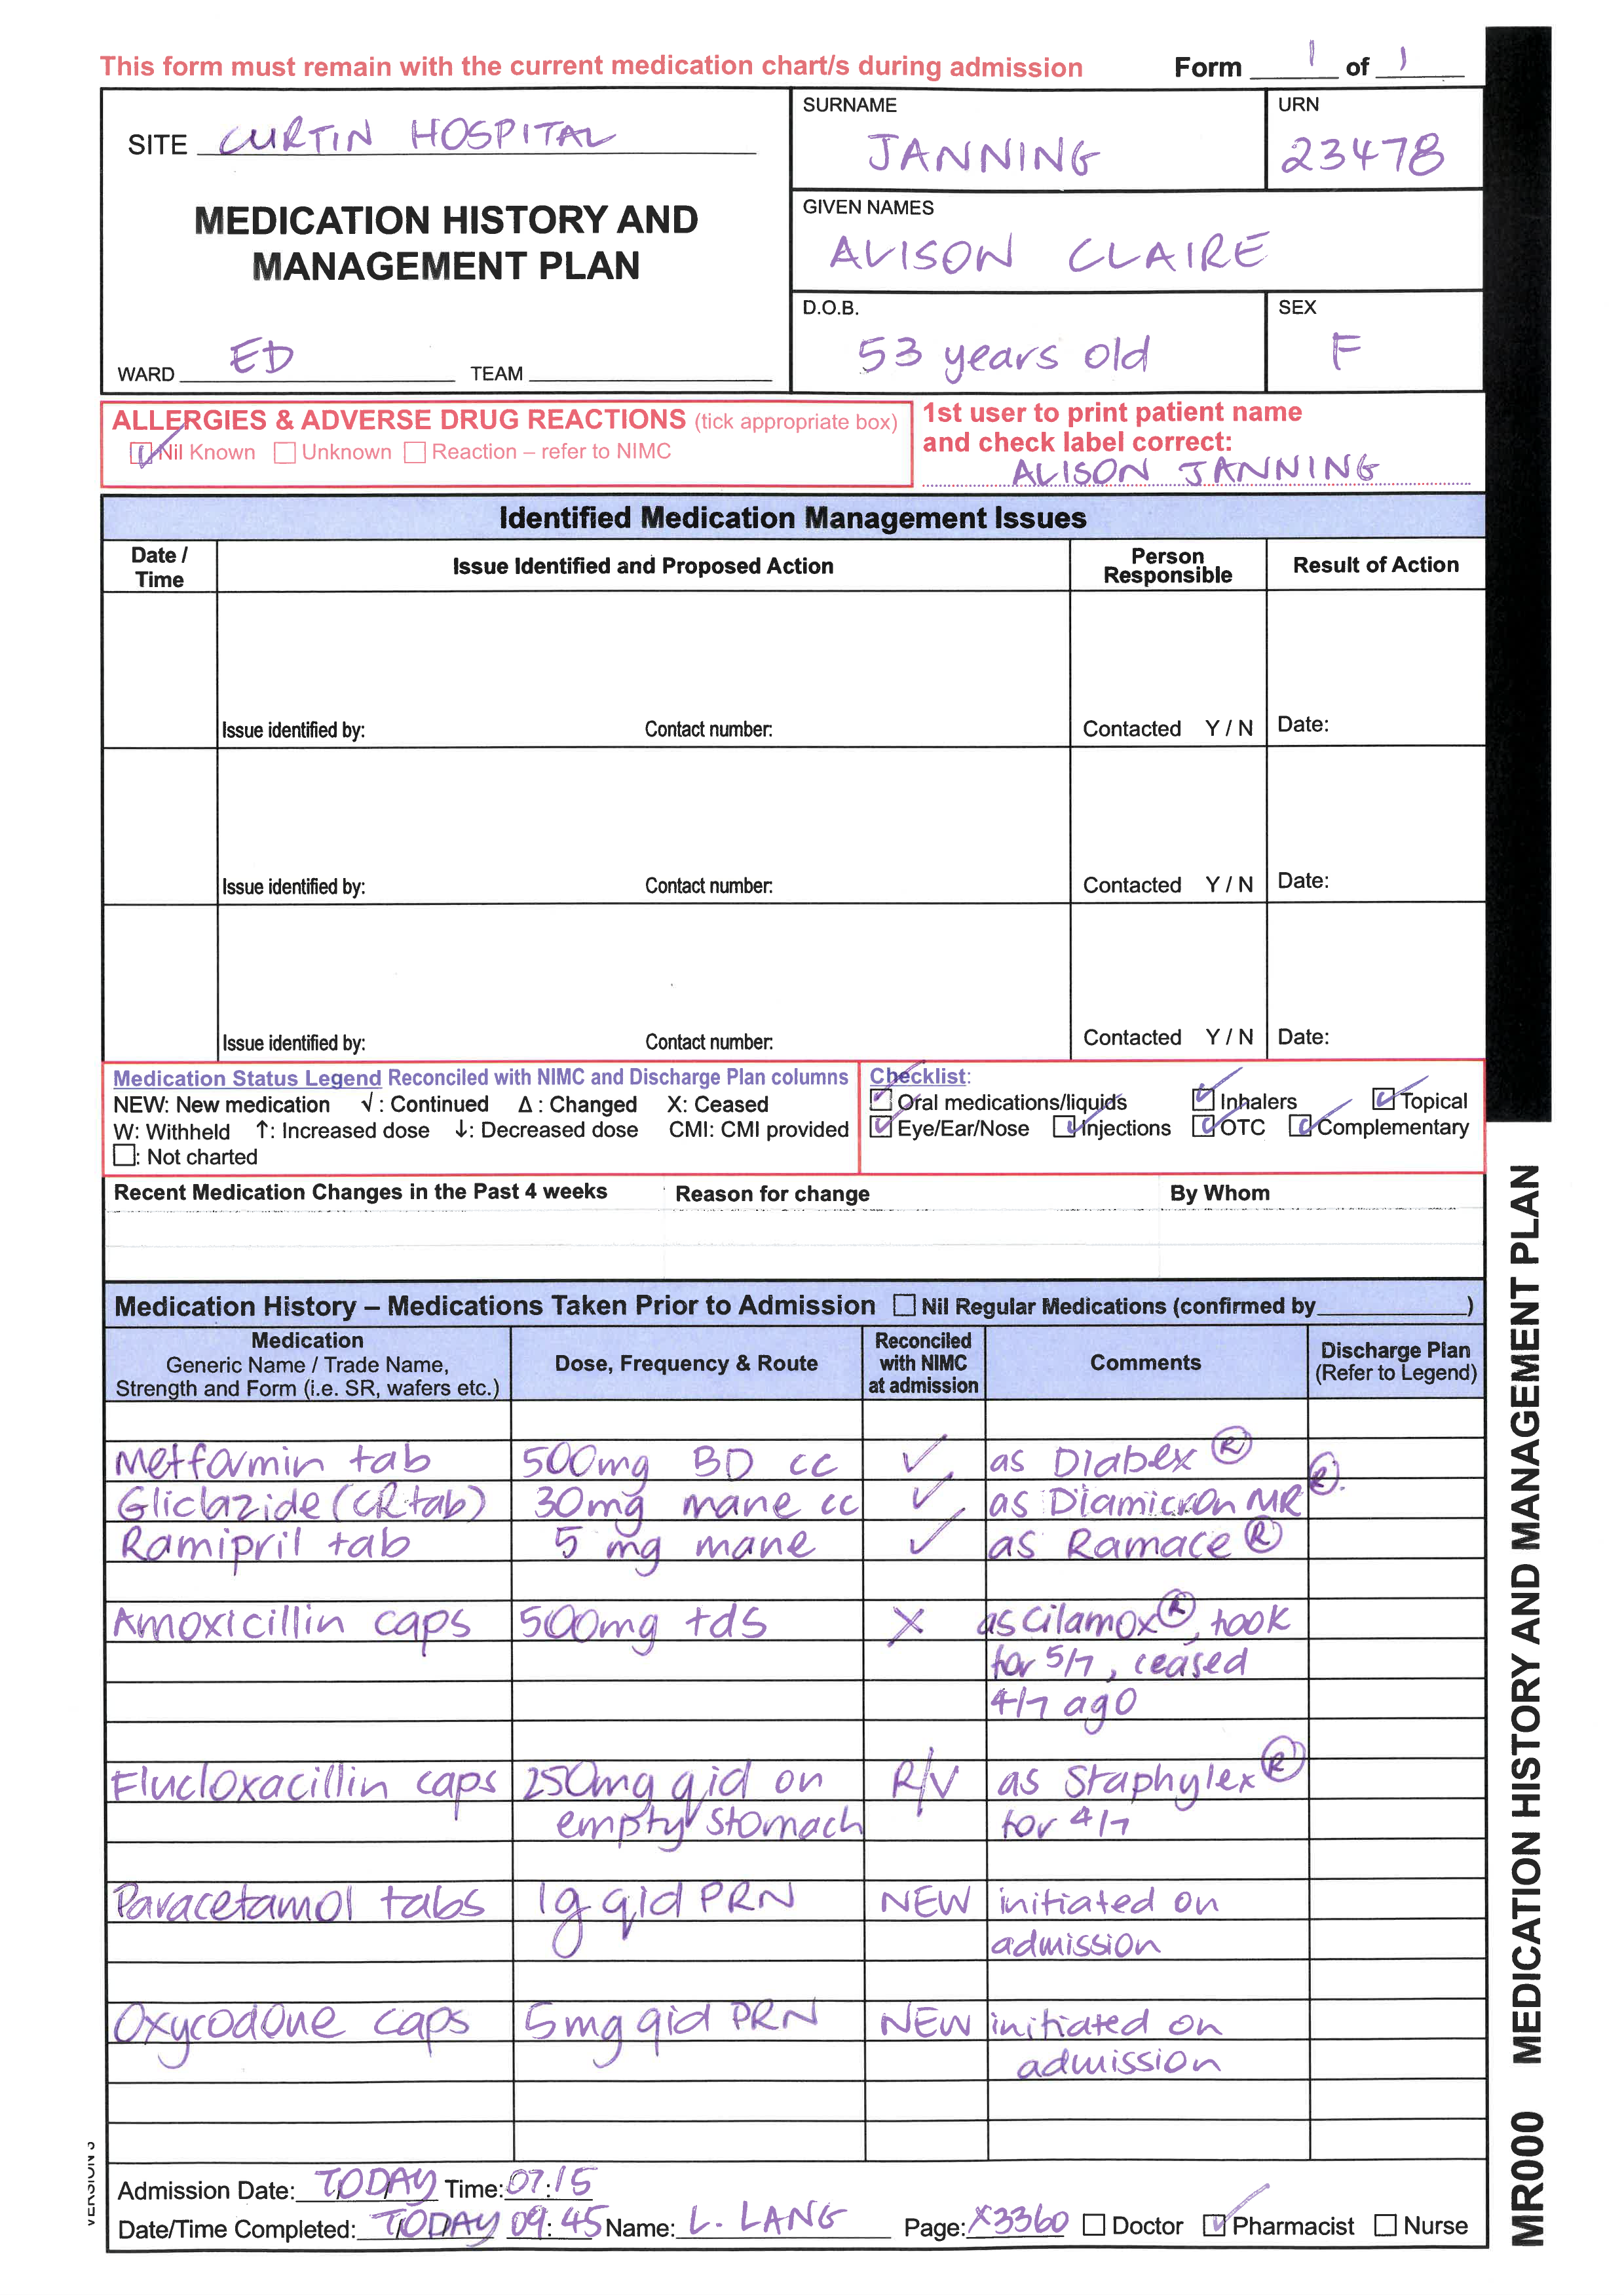 This form must remain with the current medication chart/s during admission
Form 1 of 1
SITE CURTIN HOSPITAL
MEDICATION HISTORY AND
MANAGEMENT PLAN
WARD ED TEAM
SURNAME
JANNING
URN
23478
GIVEN NAMES
ALISON CLAIRE
D.O.B.
53 years old
SEX
F
ALLERGIES & ADVERSE DRUG REACTIONS (tick appropriate box)
Nil Known Unknown Reaction – refer to NIMC
1st user to print patient name
and check label correct:
ALISON JANNING
Identified Medication Management Issues
Date /
Time
Issue Identified and Proposed Action
Person
Responsible
Result of Action
Issue identified by: Contact number: Contacted Y / N Date:
Issue identified by: Contact number: Contacted Y / N Date:
Issue identified by: Contact number: Contacted Y / N Date:
Medication Status Legend Reconciled with NIMC and Discharge Plan columns
NEW: New medication √ : Continued Δ : Changed X: Ceased
W: Withheld ↑: Increased dose ↓: Decreased dose CMI: CMI provided
☐: Not charted
Checklist:
Oral medications/liquids Inhalers Topical
Eye/Ear/Nose Injections OTC Complementary
Recent Medication Changes in the Past 4 weeks Reason for change By Whom
Medication History – Medications Taken Prior to Admission Nil Regular Medications (confirmed by )
Medication
Generic Name / Trade Name,
Strength and Form (i.e. SR, wafers etc.)
Dose, Frequency & Route
Reconciled
with NIMC
at admission
Comments
Discharge Plan
(Refer to Legend)
Metformin tab 500mg BD cc ✓ as Diabex ®
Gliclazide (CR tab) 30mg mane cc ✓ as Diamicron MR ®.
Ramipril tab 5 mg mane ✓ as Ramace ®
Amoxicillin caps 500mg tds X as Cilamox ®, took
for 5/7, ceased
4/7 ago
Flucloxacillin caps 250mg qid on R/V as Staphylex ®
empty stomach for 4/7
Paracetamol tabs 1g qid PRN NEW initiated on
admission
Oxycodone caps 5mg qid PRN NEW initiated on
admission
Admission Date: TODAY Time: 07:15
Date/Time Completed: TODAY 09:45 Name: L. LANG Page: x3360 Doctor Pharmacist Nurse
VERSION 5
MR000 MEDICATION HISTORY AND MANAGEMENT PLAN